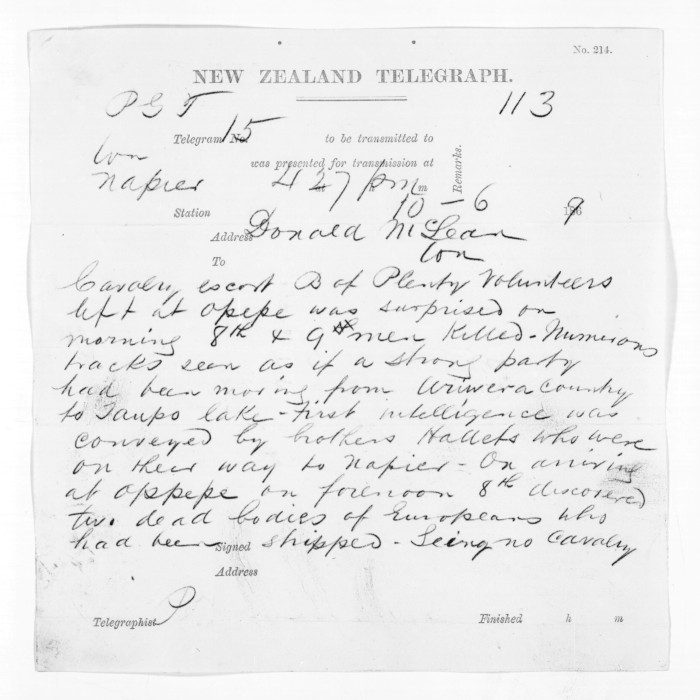 No. 214.
NEW ZEALAND TELEGRAPH.
P G T 113
Telegram No. 15 to be transmitted to
Wn was presented for transmission at
Remarks.
Napier 4 27 pm m
10-6
Station 1869
Address Donald McLean
To Wn
Cavalry escort B of Plenty Volunteers
left at Opepe was surprised on
morning 8th & 9 men Killed - Numerous
tracks seen as if a strong party
had been moving from Uriwera country
to Taupo lake - First intelligence was
conveyed by brothers Hallets who were
on their way to Napier - On arriving
at Oppepe on forenoon 8th discovered
two dead bodies of Europeans who
had been Signed stripped - Seeing no Cavalry
Address
Telegraphist P Finished h m